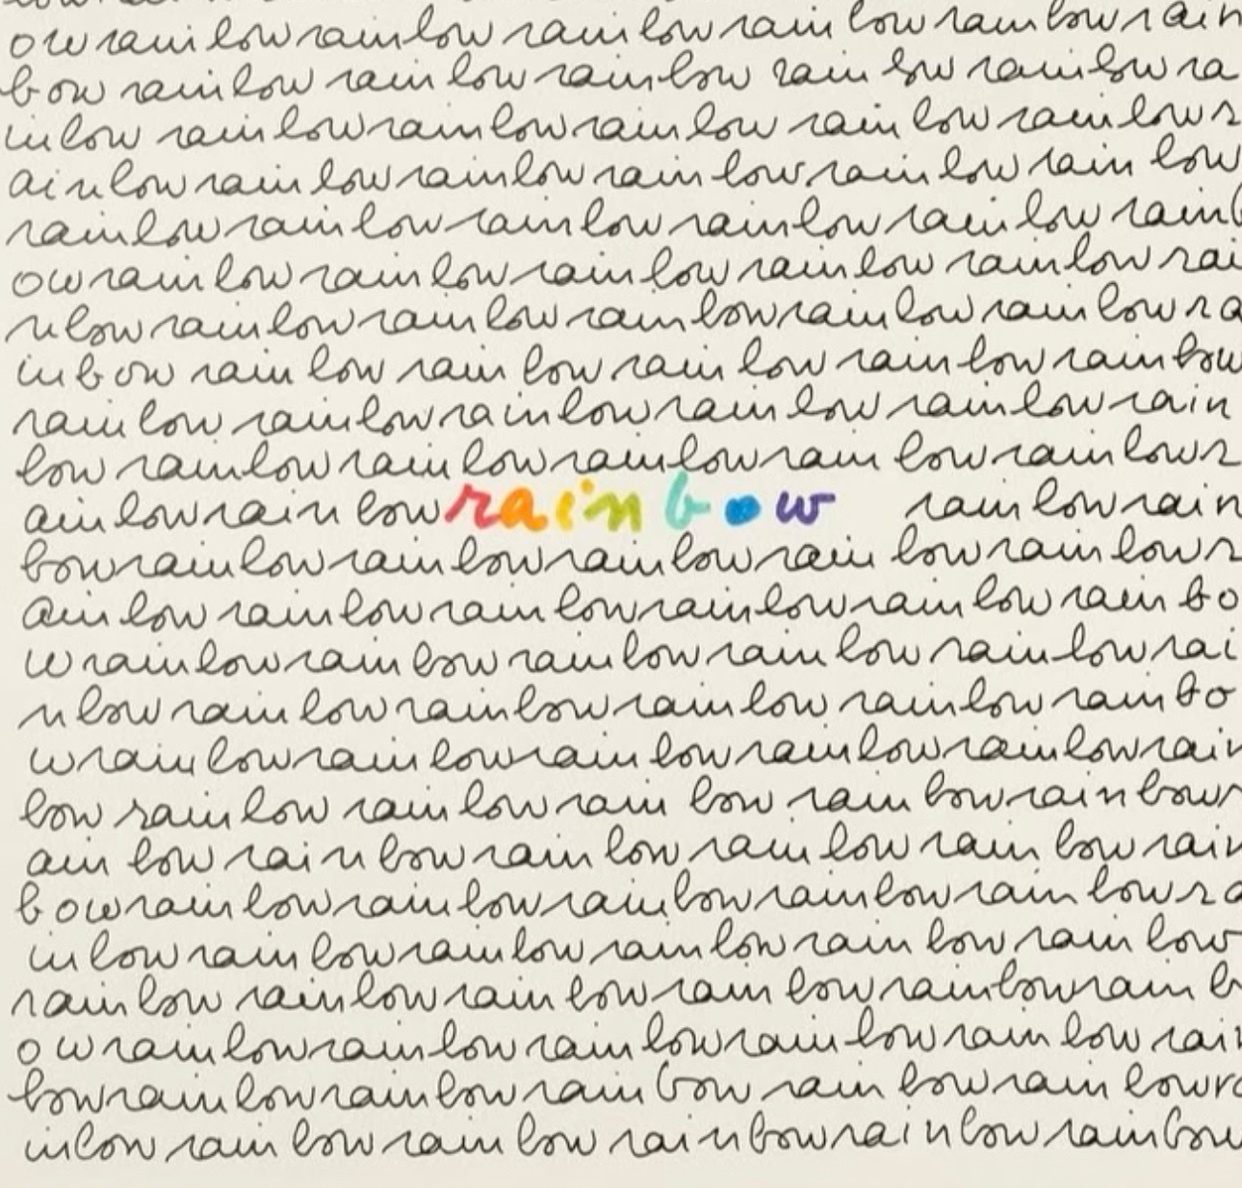 owrainbowrainbowrainbowrainbowrainbowrain
bowrainbowrainbowrainbowrainbowrainbowra
inbowrainbowrainbowrainbowrainbowrainbowr
ainbowrainbowrainbowrainbowrainbowrainbow
rainbowrainbowrainbowrainbowrainbowrainb
owrainbowrainbowrainbowrainbowrainbowrai
nbowrainbowrainbowrainbowrainbowrainbowra
inbowrainbowrainbowrainbowrainbowrainbow
rainbowrainbowrainbowrainbowrainbowrain
bowrainbowrainbowrainbowrainbowrainbowr
ainbowrainbowrainbow rainbowrain
bowrainbowrainbowrainbowrainbowrainbowr
ainbowrainbowrainbowrainbowrainbowrainbo
wrainbowrainbowrainbowrainbowrainbowrai
nbowrainbowrainbowrainbowrainbowrainbo
wrainbowrainbowrainbowrainbowrainbowrain
bowrainbowrainbowrainbowrainbowrainbowr
ainbowrainbowrainbowrainbowrainbowrain
bowrainbowrainbowrainbowrainbowrainbowra
inbowrainbowrainbowrainbowrainbowrainbow
rainbowrainbowrainbowrainbowrainbowrainb
owrainbowrainbowrainbowrainbowrainbowrain
bowrainbowrainbowrainbowrainbowrainbowra
inbowrainbowrainbowrainbowrainbowrainbow